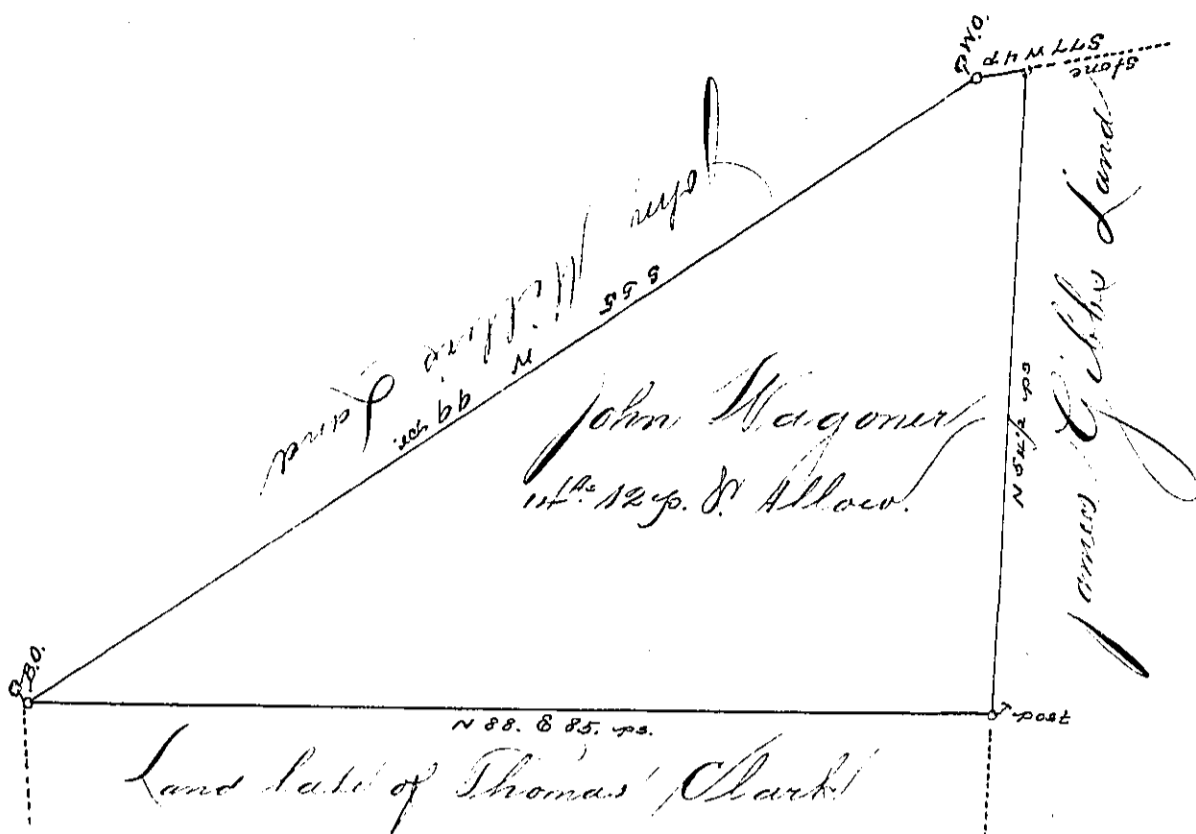 W.O.
S77 W 4 p
stone
John Wilkins Land
S 55 W 99 pr.
John Wagoner
14As 12 p. & Allow.
N 54½ ps
James Gibbs Land
B.O.
N 88. E 85. ps.
post
Land late of Thomas Clark